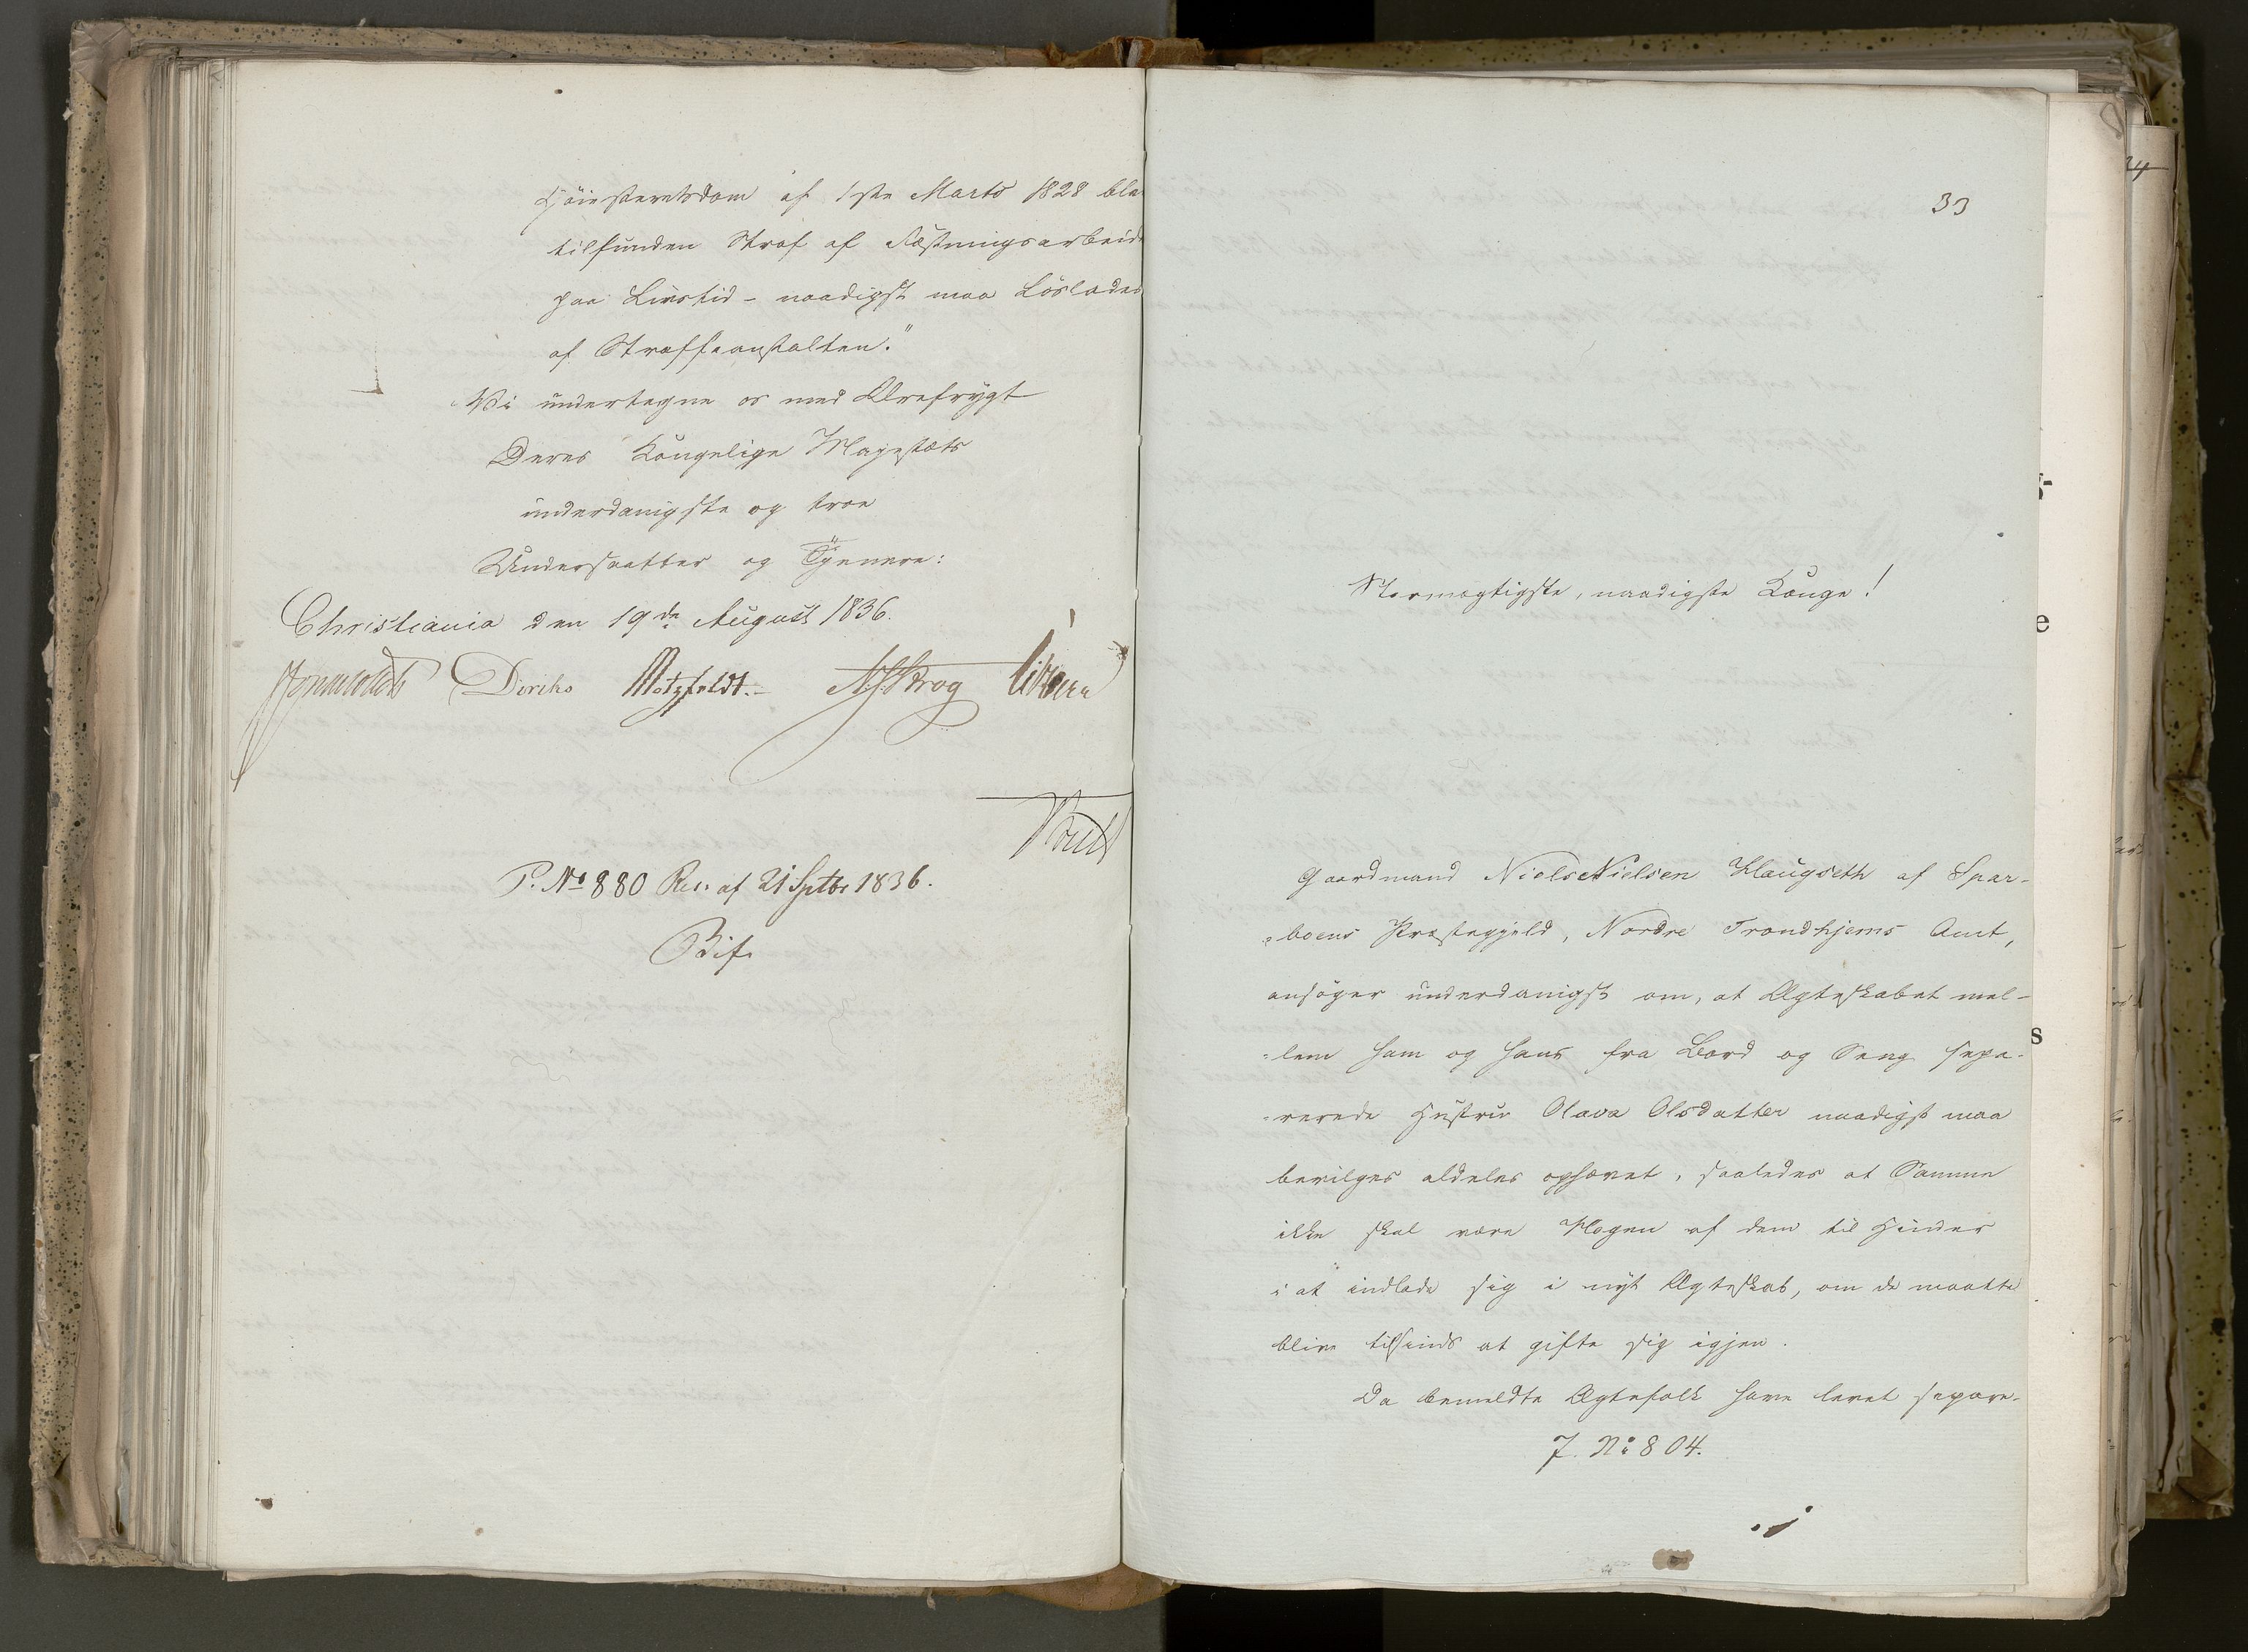 Høiesteretsdom af 1ste Marts 1828 ble
tilfunden Straf af Fæstningsarbeide
paa Livstid - naadigst maa löslades
af Straffeanstalten."
Vi undertegne os med Ærefrygt
Deres Kongelige Majestæts
underdanigste og troe
Undersaatter og Tjenere:
Christiania den 19de August 1836.
Diriks Motzfeldt. Krog Vibe
P. No 880 Res. af 21 Septbr 1836.
Bif.
33
Stormægtigste, naadigste Konge!
Gaardmand Niels Nielsen Haugseth af Spar-
=boens Præstegjeld, Nordre Trondhjems Amt,
ansöger underdanigst om, at Ægteskabet mel-
=lem ham og hans fra Bord og Seng sepa-
=rerede Hustru Olava Olsdatter naadigst maa
bevilges aldeles ophævet, saaledes at Samme
ikke skal være Nogen af dem til Hinder
i at indlade sig i nyt Ægteskab, om de maatte
blive tilsinds at gifte sig igjen.
Da bemeldte Ægtefolk have levet separe-
J. No 804.
24